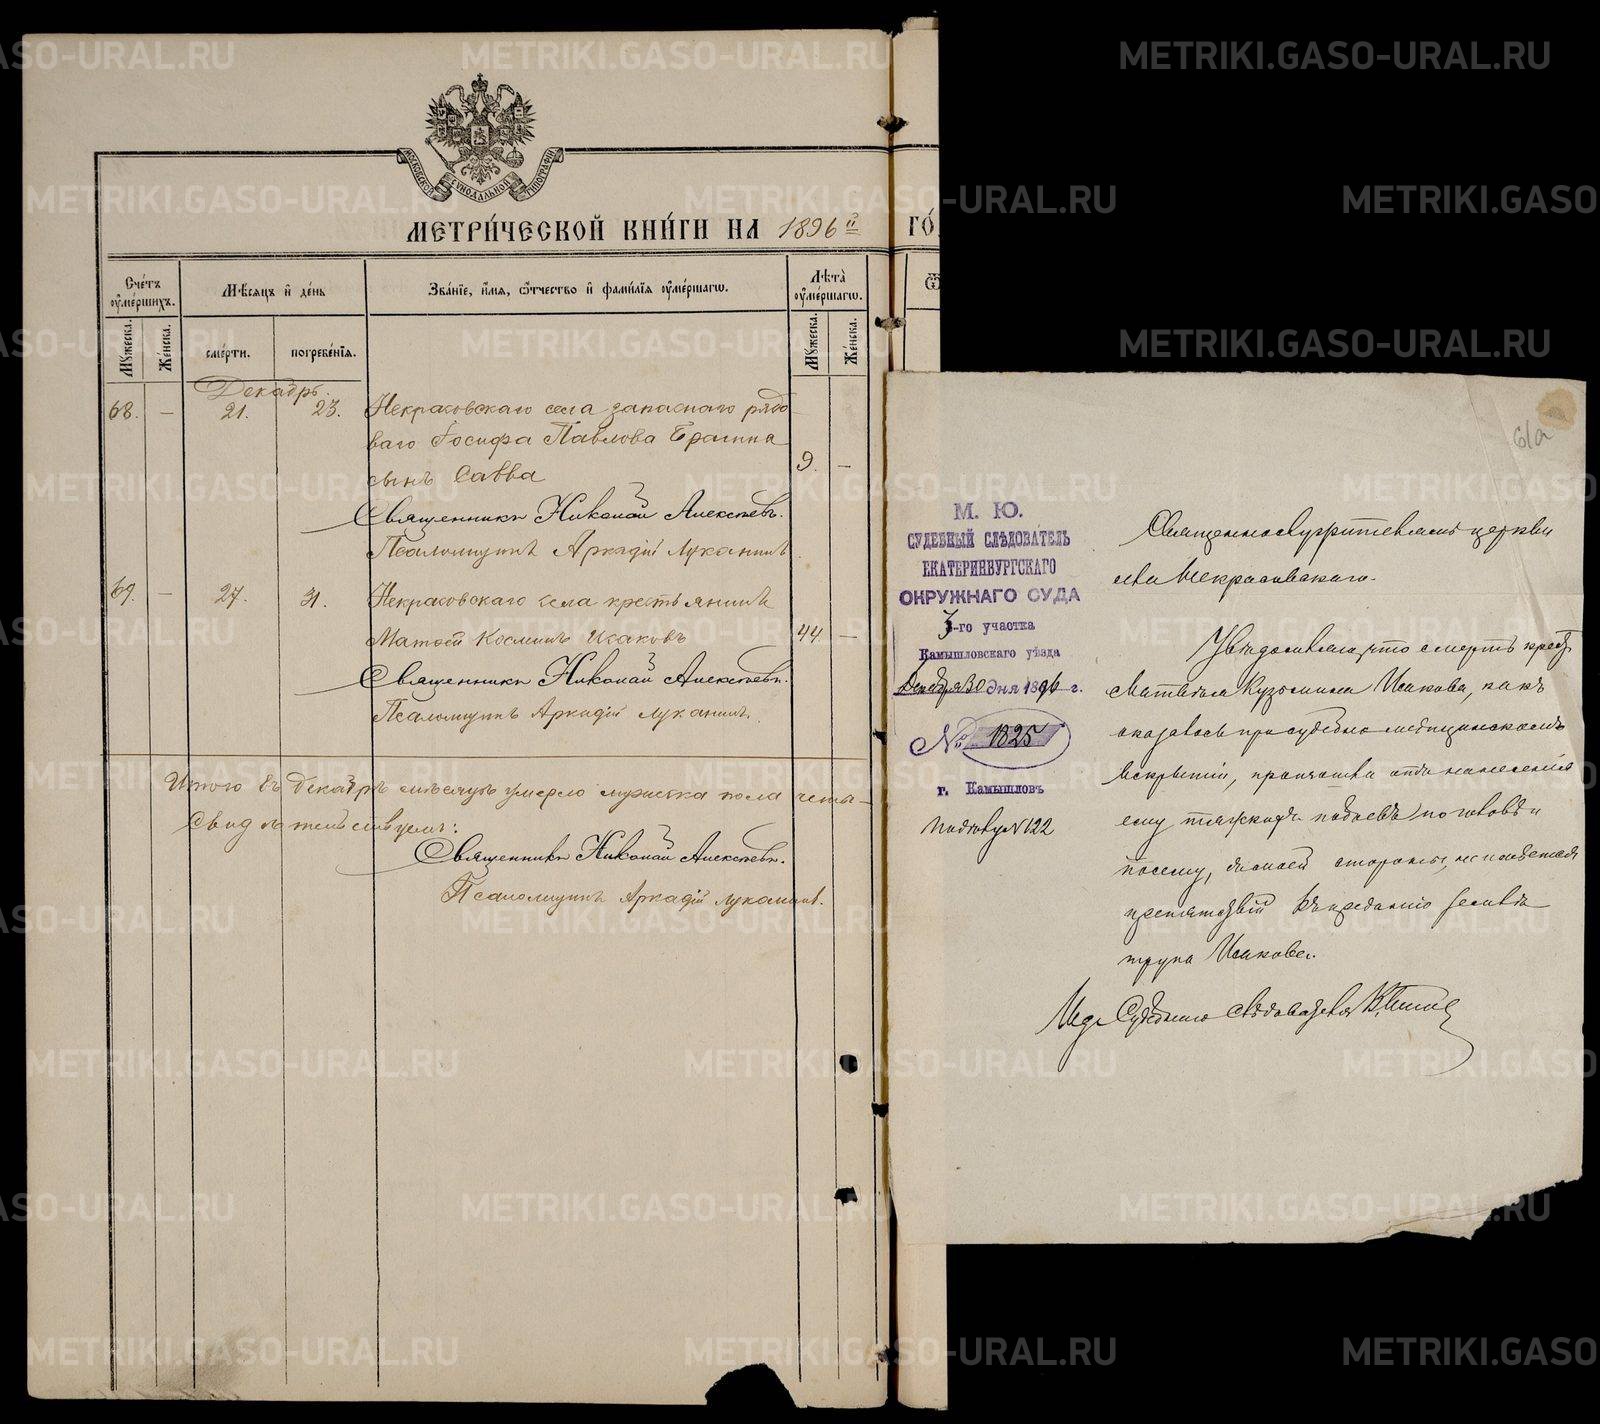 МОСКОВСКОЙ СУНОДАЛЬНОЙ ТИПОГРАФІИ
МЕТРИ́ЧЕСКОЙ КНИ́ГИ НА 1896й ГО́
Сче́тъ оу҆ме́ршихъ.
Мѣ́сяцъ и де́нь
Зва́ніе, и́мя, ѿтчество и фами́лія оу҆ме́ршагѡ.
Лѣта̀ оу҆ме́ршагѡ.
Ѿ
Му́жеска.
Же́нска.
сме́рти.
погребе́нія.
Му́жеска.
Же́нска.
Декабрь.
68. — 21. 23. Некрасовскаго села запаснаго рядо-
ваго Іосифа Павлова Брагина
сынъ Савва 9. —
Священникъ Николай Алексѣевъ.
Псаломщикъ Аркадій Луканинъ
69. — 27. 31. Некрасовскаго села крестьянинъ
Матѳей Косминъ Исаковъ 44. —
Священникъ Николай Алексѣевъ.
Псаломщикъ Аркадій Луканинъ.
Итого въ Декабрѣ мѣсяцѣ умерло мужеска пола четы-
Свидѣтельствуемъ:
Священникъ Николай Алексѣевъ.
Псаломщикъ Аркадій Луканинъ.
61а
М. Ю.
СУДЕБНЫЙ СЛѢДОВАТЕЛЬ
ЕКАТЕРИНБУРГСКАГО
ОКРУЖНАГО СУДА
3-го участка
Камышловскаго уѣзда
Декабря 30 дня 1896 г.
№ 1825
г. Камышловъ
По дѣлу N 122
Священнослужителямъ церкви
села Некрасовскаго.
Увѣдомляю, что смерть крест.
Матвѣя Кузьмина Исакова, какъ
оказалось при судебно-медицинскомъ
вскрытіи, произошла отъ нанесенія
ему тяжкихъ побоевъ по головѣ и
посему, съ моей стороны, не имѣется
препятствій къ преданію землѣ
трупа Исакова.
И.д. Судебнаго слѣдователя
METRIKI.GASO-URAL.RU